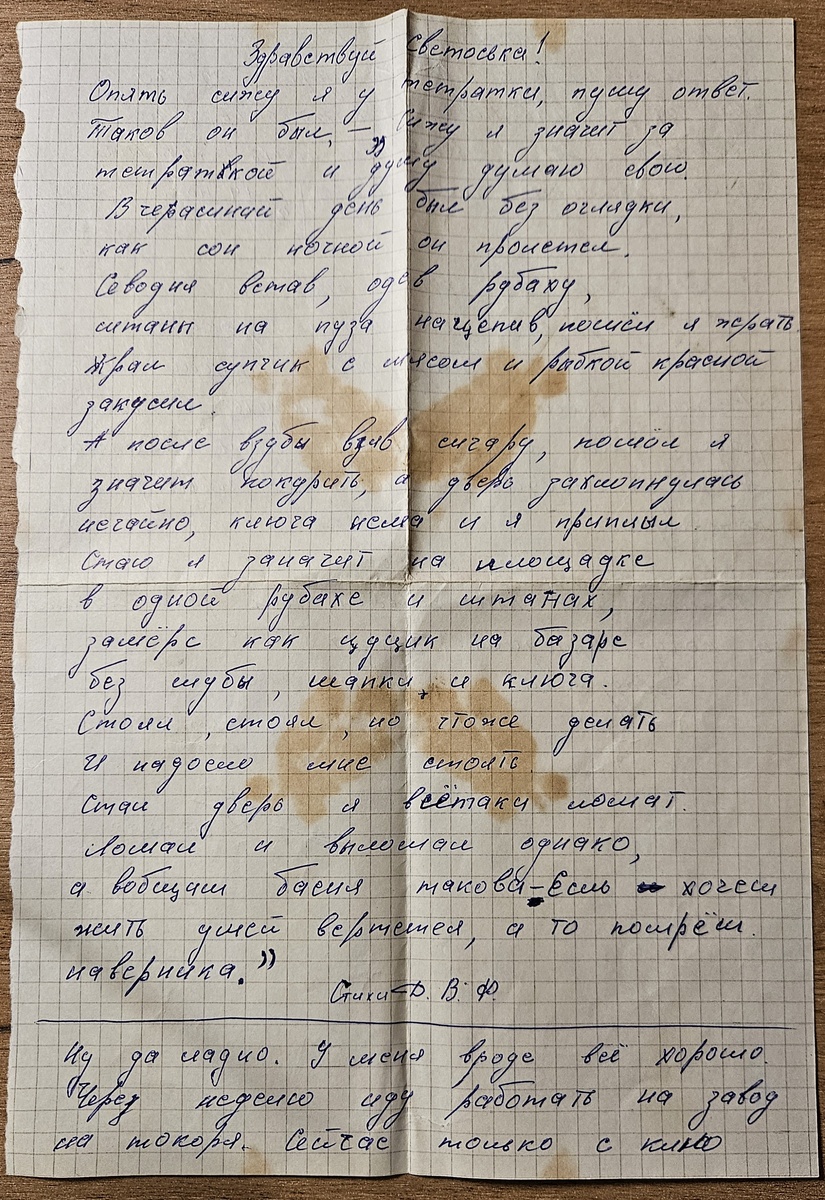 Здравствуй Светоська!
Опять сижу я у тетратки, пушу ответ.
Таков он был, – Сижу я значит за
тетраткой и думу думаю свою.
Вчерасиний день был без оглядки,
как сон ночной он пролетел.
Севодня встав, одев рубаху,
штаны на пуза нацепив, пошёл я жрать
Жрал супчик с мясом и рыбкой красной
закусил.
А после взубы взяв сигару, пошёл я
значит покурить, а дверь захлопнулась
нечайно, ключа нема и я приплыл
Стаю я заначит на площадке
в одной рубахе и штанах,
замёрс как цуцик на базаре
без шубы, шапки, и ключа.
Стоял, стоял, но чтоже делать
И надоело мне стоять.
Стал дверь я всётаки ломат.
Ломал и выломал однако,
а вобщим басня такова – Есль хочеш
жить умей вертется, а то помрёш.
наверника."
Стихи – Ф. В. Ф.
Ну да ладно. У меня вроде всё хорошо.
Через неделю иду работать на завод
на токоря. Сейчас только с кино